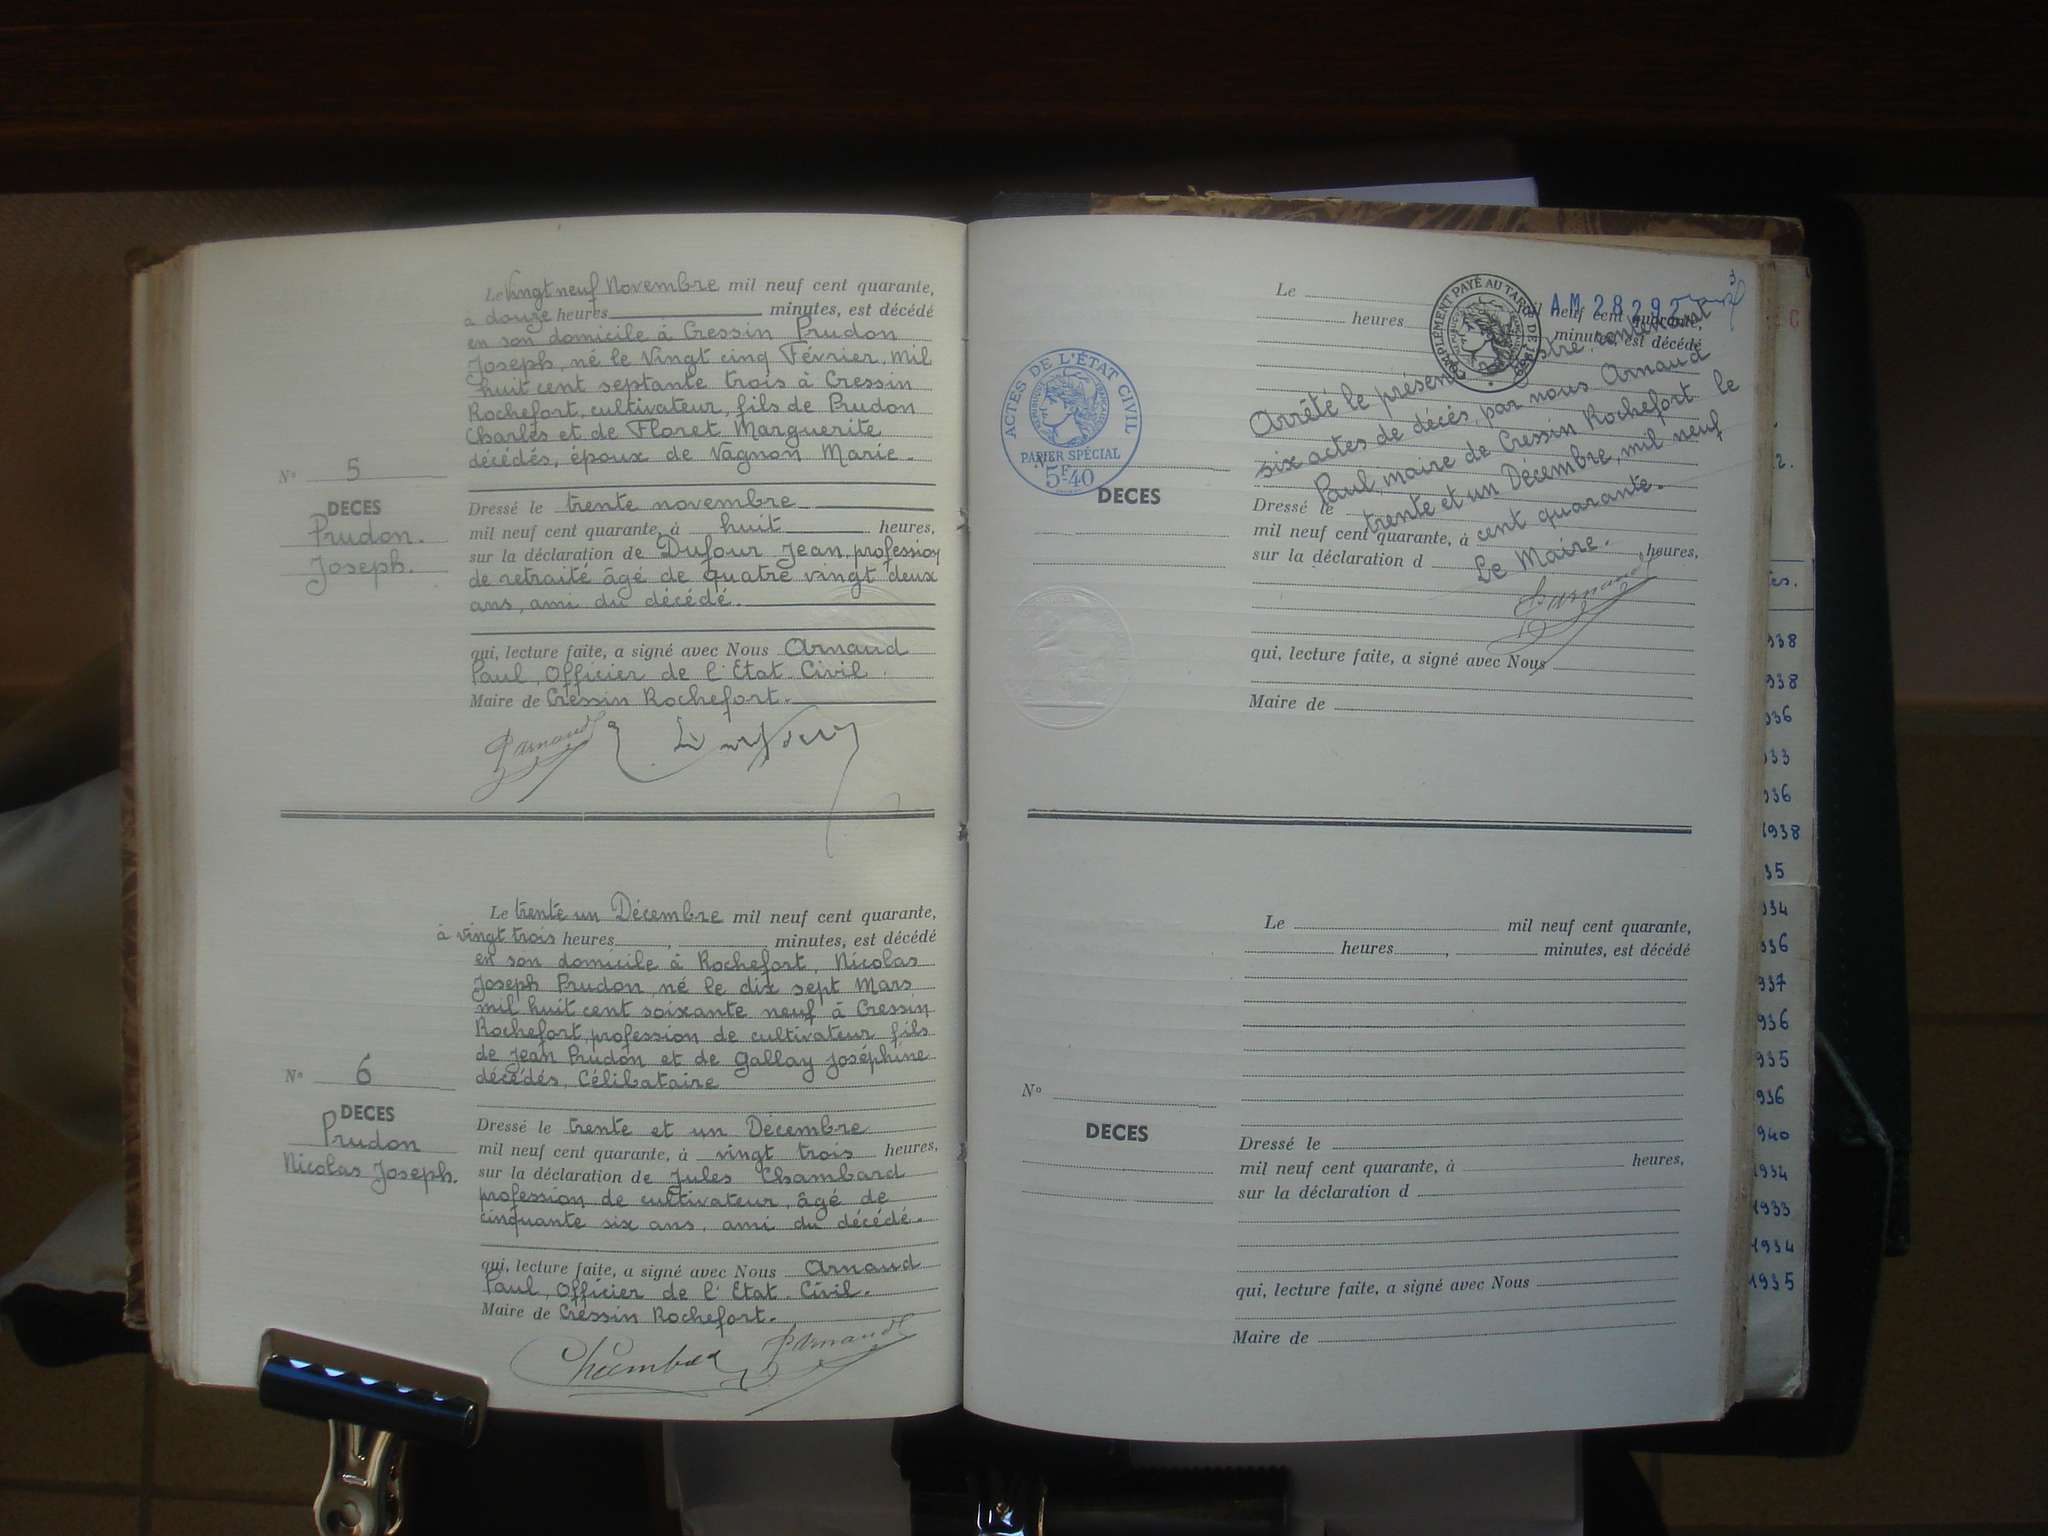 Le Vingt neuf Novembre mil neuf cent quarante,
à douze heures minutes, est décédé
en son domicile à Cressin Prudon
Joseph, né le Vingt cinq Février, mil
huit cent septante trois à Cressin
Rochefort, cultivateur, fils de Prudon
Charles et de Floret Marguerite
décédés, époux de Vagnon Marie.
N° 5
DECES
Prudon.
Joseph.
Dressé le trente novembre
mil neuf cent quarante, à huit heures,
sur la déclaration de Dufour Jean, profession
de retraité âgé de quatre vingt deux
ans, ami du décédé.
qui, lecture faite, a signé avec Nous Arnaud
Paul, Officier de l'Etat Civil.
Maire de Cressin Rochefort.
P Arnaud
Le trente un Décembre mil neuf cent quarante,
à vingt trois heures, minutes, est décédé
en son domicile à Rochefort, Nicolas
Joseph Prudon, né le dix sept Mars
mil huit cent soixante neuf à Cressin
Rochefort, profession de cultivateur fils
de Jean Prudon et de Gallay Joséphine
décédés, Célibataire
N° 6
DECES
Prudon
Nicolas Joseph.
Dressé le trente et un Décembre
mil neuf cent quarante, à vingt trois heures,
sur la déclaration de Jules Chambard
profession de cultivateur, âgé de
cinquante six ans, ami du décédé.
qui, lecture faite, a signé avec Nous Arnaud
Paul, Officier de l'Etat Civil.
Maire de Cressin Rochefort.
P Arnaud
Le mil neuf cent quarante,
heures minutes, est décédé
COMPLÉMENT PAYÉ AU TARIF DE
AM 28292
ACTES DE L'ÉTAT CIVIL
PAPIER SPÉCIAL
5F40
Arrêté le présent registre contenant
six actes de décès, par nous Arnaud
Paul, maire de Cressin Rochefort le
trente et un Décembre, mil neuf
cent quarante.
Le Maire.
P Arnaud
N°
DECES
Dressé le
mil neuf cent quarante, à heures,
sur la déclaration d
qui, lecture faite, a signé avec Nous
Maire de
Le mil neuf cent quarante,
heures, minutes, est décédé
N°
DECES
Dressé le
mil neuf cent quarante, à heures,
sur la déclaration d
qui, lecture faite, a signé avec Nous
Maire de
938
938
936
33
936
1938
35
934
936
937
936
935
936
940
1934
1933
1934
1935